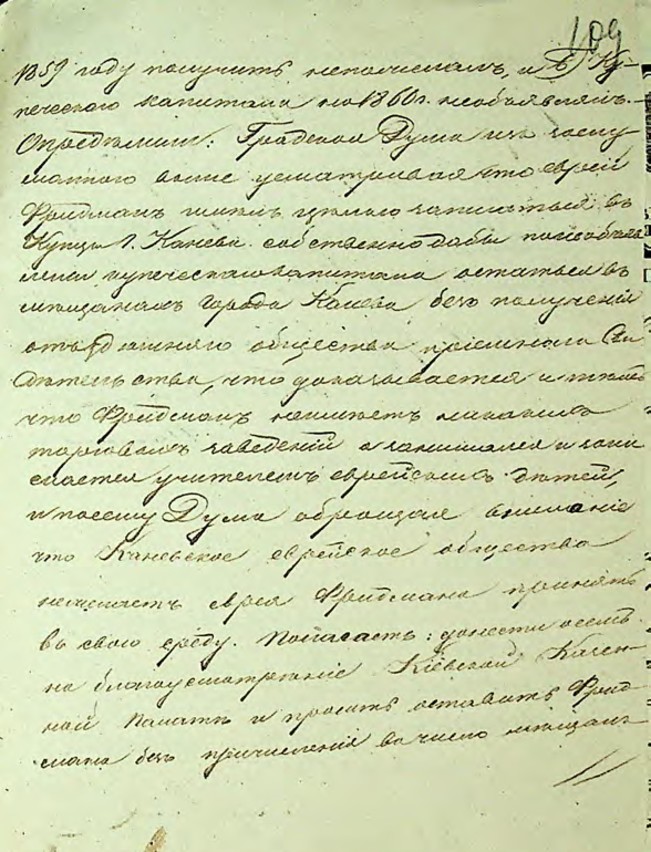 109
1859 году получить непожелалъ, и Ку-
печескаго капитала на 1860 г. необъявлялъ.
Опредѣлили: Градская Дума изъ
выше усматривая что еврей
Фридманъ записаться въ
Купцы г. Канева собственно дабы
купеческаго капитала остаться въ
мѣщанахъ города Канева безъ полученія
отъ общества пріемнаго Сви-
дѣтельства, что доказывается и тѣмъ
что Фридманъ неимѣетъ никакихъ
торговыхъ заведеній а занимался и зани
мается учителемъ еврейскихъ дѣтей,
и посему Дума обращая вниманіе
что Каневское еврейское общество
нежелаетъ еврея Фридмана принять
въ свою среду. Полагаетъ: донести о семъ
на благоусмотреніе Кіевской Казен-
ной Палатѣ и просить оставить Фрид-
мана безъ причисленія въ число мѣщанъ